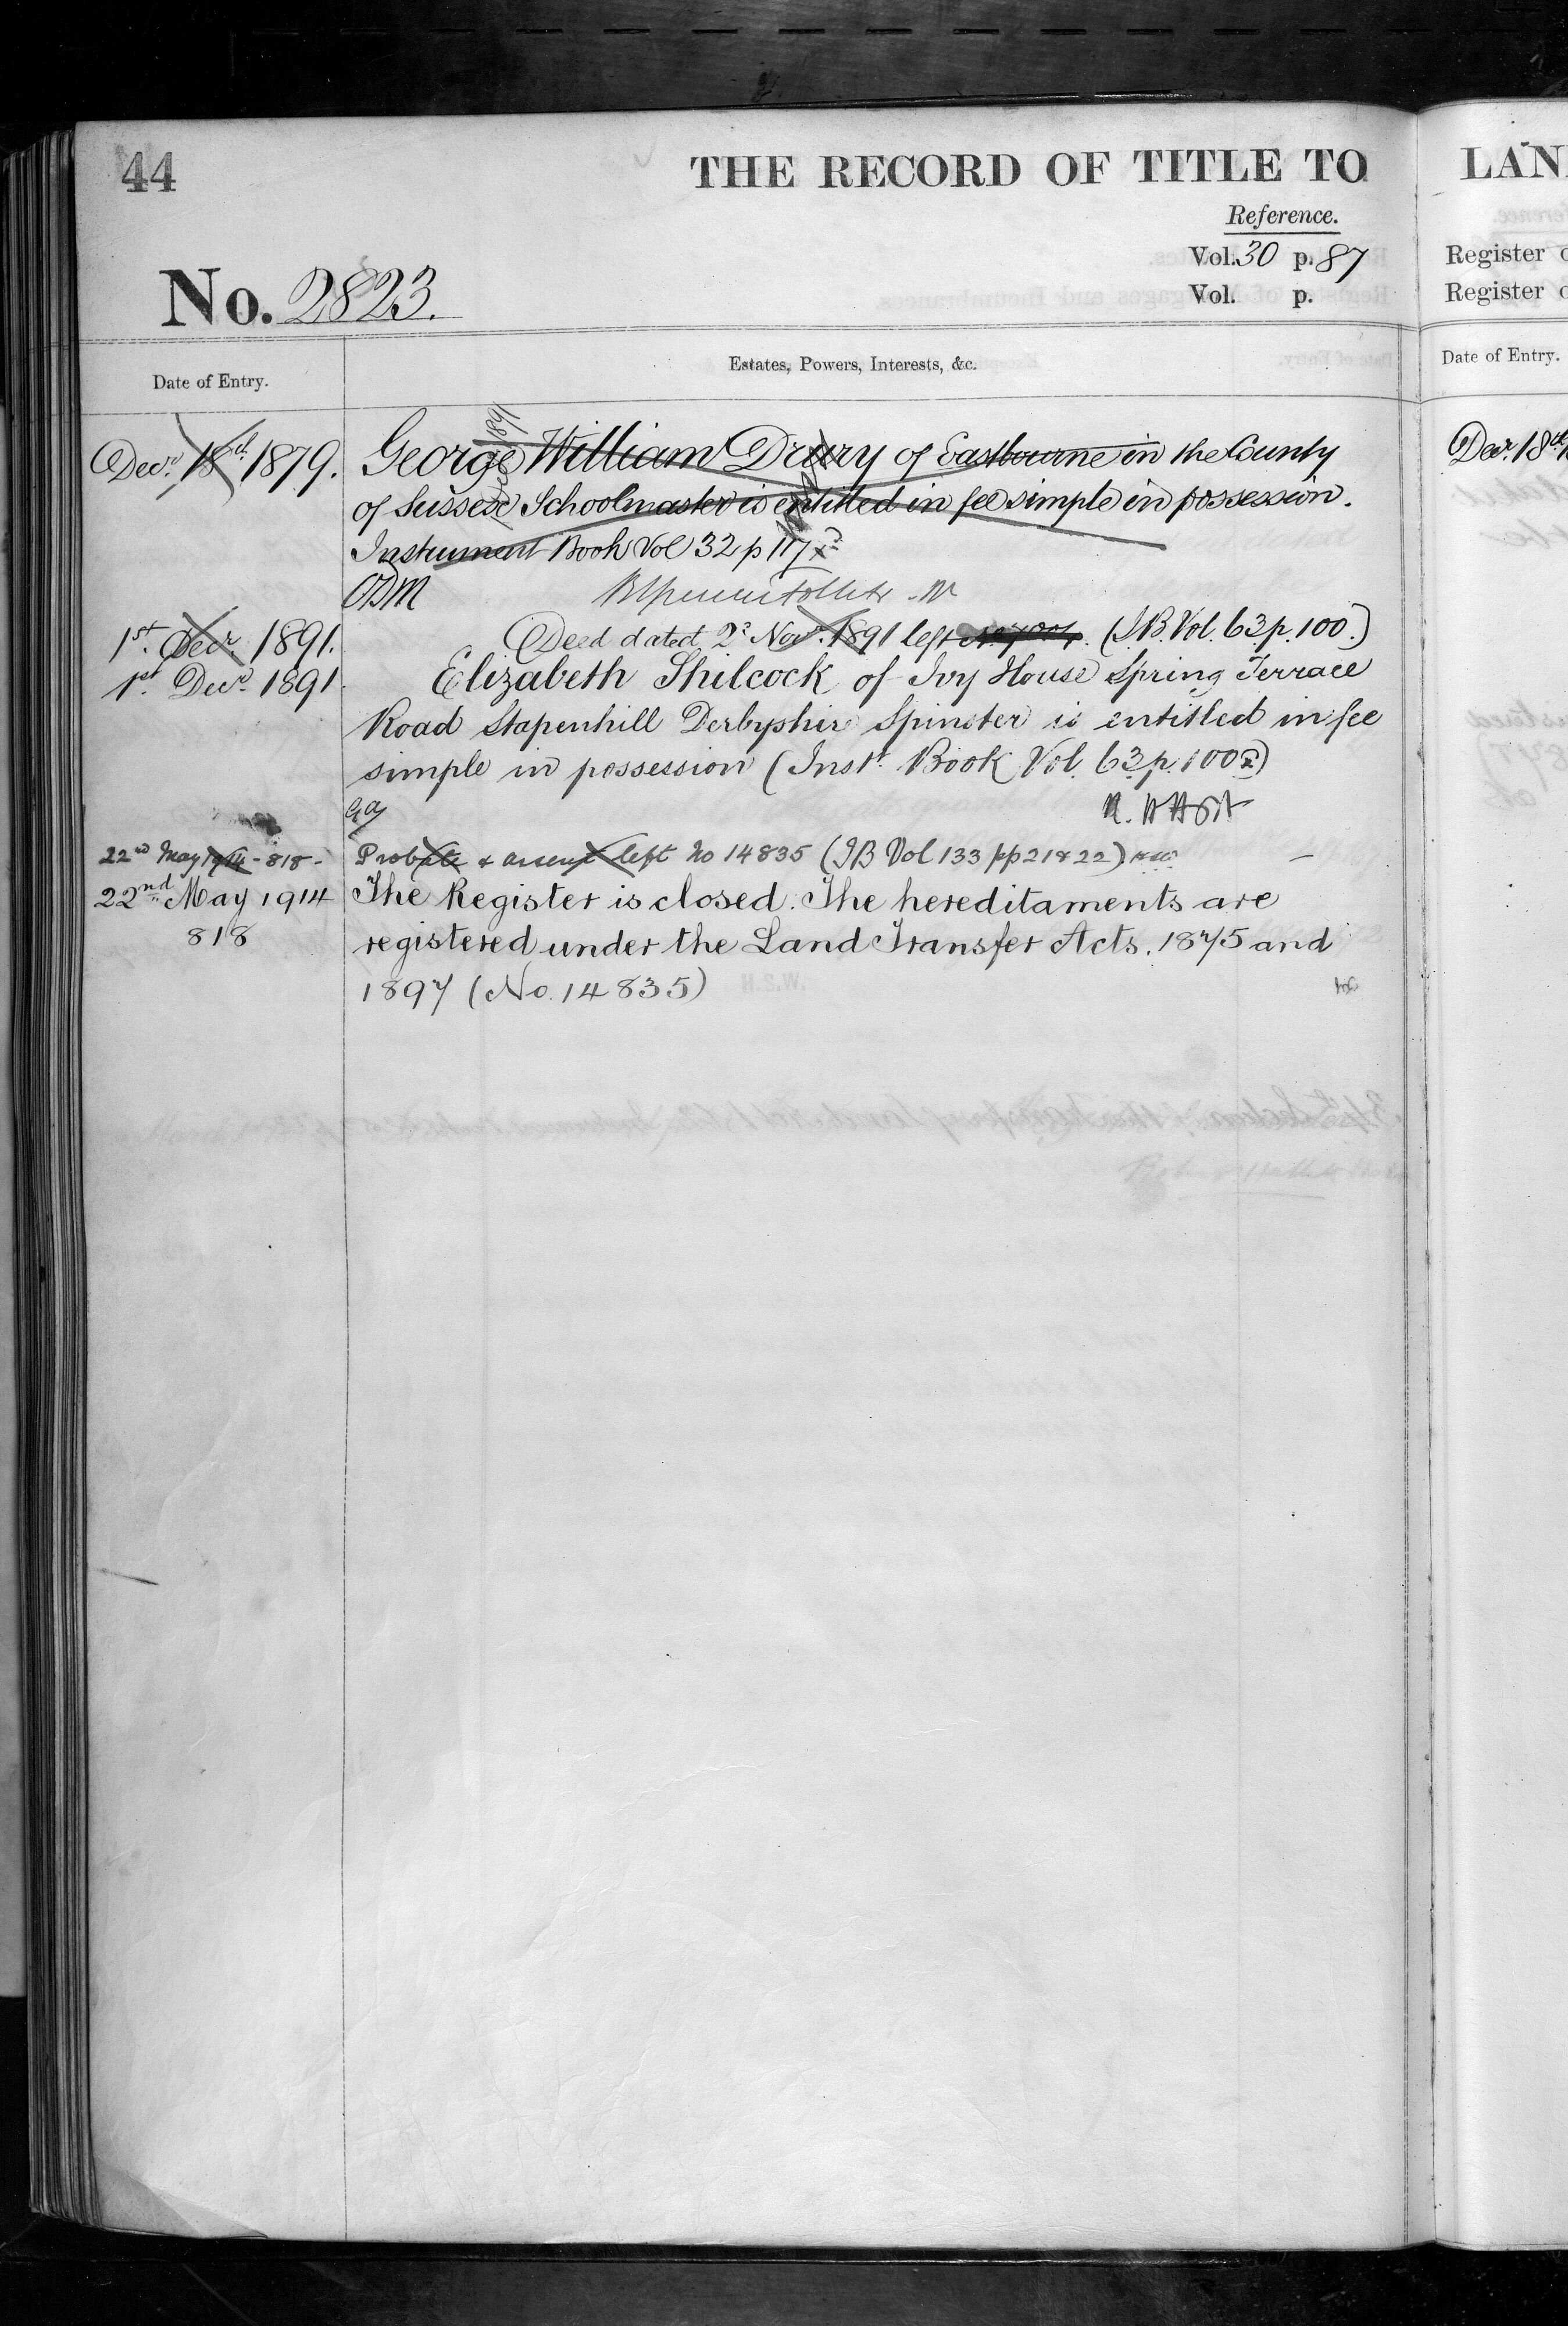 44
THE RECORD OF TITLE TO
LAN
Reference.
Vol. 30 p. 87
Register
Vol. p.
Register
No. 2823.
Date of Entry.
Estates, Powers, Interests, &c.
Date of Entry.
Decr. 18th 1879.
George William Drury of Eastbourne in the County
of Sussex Schoolmaster is entitled in fee simple in possession.
Instrument Book Vol 32 p 117
Decr. 18th
1st. Decr 1891.
Deed dated 2d Novr. 1891 left (I.B. Vol. 63 p. 100.)
1st. Decr. 1891.
Elizabeth Shilcock of Ivy House Spring Terrace
Road Stapenhill Derbyshire Spinster is entitled in fee
simple in possession (Inst. Book Vol. 63 p. 100)
22nd May 1914 - 818 -
Probate & assent left No 14835 (IB Vol 133 pp 21 & 22)
22nd May 1914
818
The Register is closed. The hereditaments are
registered under the Land Transfer Acts. 1875 and
1897 (No. 14835)